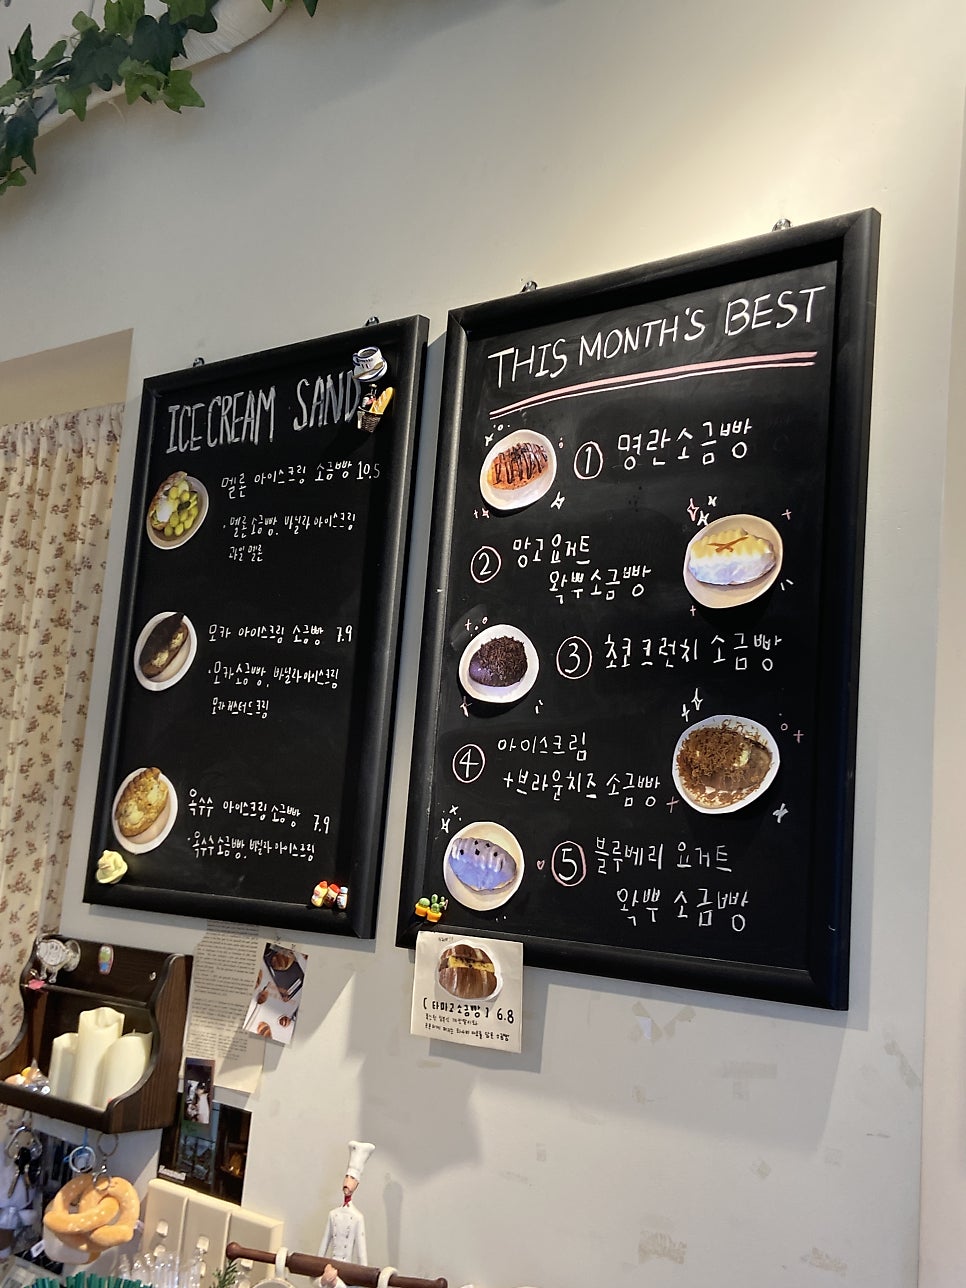 ICE CREAM SAND
멜론 아이스크림 소금빵 10.5
· 멜론소금빵, 바닐라아이스크림
과일 멜론
모카 아이스크림 소금빵 7.9
· 모카소금빵, 바닐라아이스크림
모카커스터드크림
옥수수 아이스크림 소금빵 7.9
· 옥수수소금빵, 바닐라 아이스크림
THIS MONTH'S BEST
① 명란소금빵
② 망고요거트
왁뿌소금빵
③ 초코크런치 소금빵
④ 아이스크림
+브라운치즈 소금빵
⑤ 블루베리 요거트
왁뿌 소금빵
[ 타마고소금빵 ] 6.8